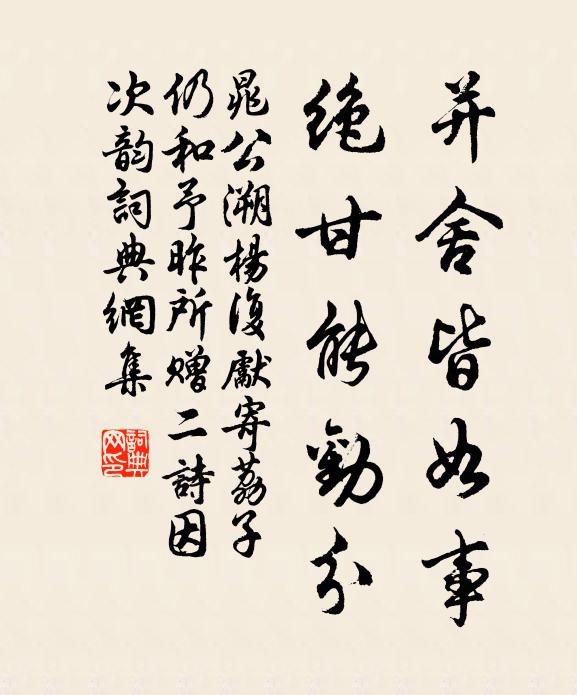 并舍皆如事
绝甘能勸分
晁公溯楊復獻寄荔子
仍和予昨所赠二詩因
次韵詞典網集
詞典
网印